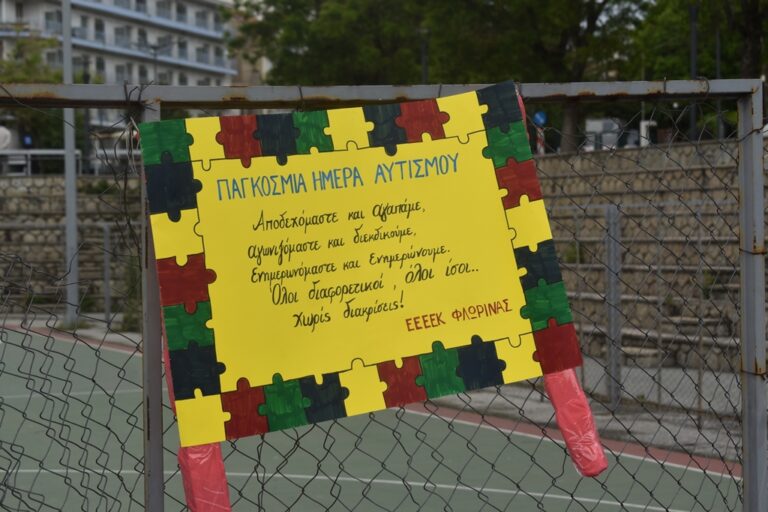 ΠΑΓΚΟΣΜΙΑ ΗΜΕΡΑ ΑΥΤΙΣΜΟΥ
Αποδεχόμαστε και αγαπάμε,
αγωνιζόμαστε και διεκδικούμε,
Ενημερωνόμαστε και Ενημερώνουμε.
Όλοι διαφορετικοί , όλοι ίσοι..
χωρίς διακρίσεις!
ΕΕΕΕΚ ΦΛΩΡΙΝΑΣ